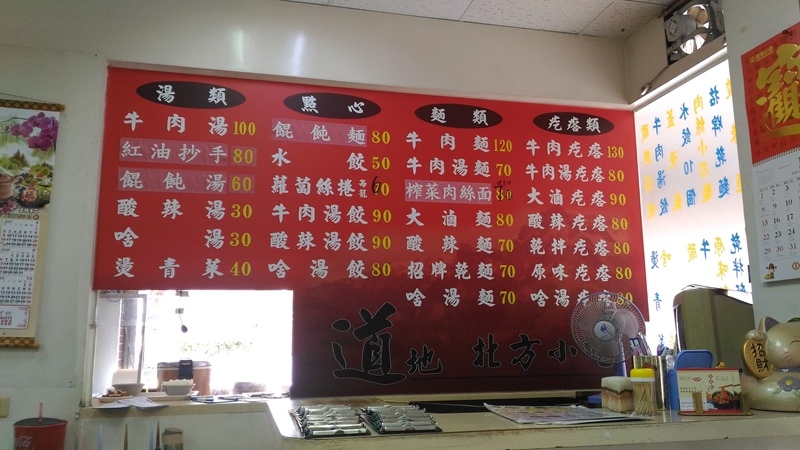 湯類
牛肉湯 100
紅油抄手 80
餛飩湯 60
酸辣湯 30
啥湯 30
燙青菜 40
點心
餛飩麵 80
水餃 50
蘿蔔絲捲
牛肉湯餃 90
酸辣湯餃 90
啥湯餃 80
麵類
牛肉麵 120
牛肉湯麵 70
榨菜肉絲面 80
大滷麵 80
酸辣麵 70
招牌乾麵 70
啥湯麵 70
疙瘩類
牛肉疙瘩 130
牛肉湯疙瘩 80
大滷疙瘩 90
酸辣疙瘩 80
乾拌疙瘩 80
原味疙瘩 80
啥湯疙瘩 80
道地 北方小
招財